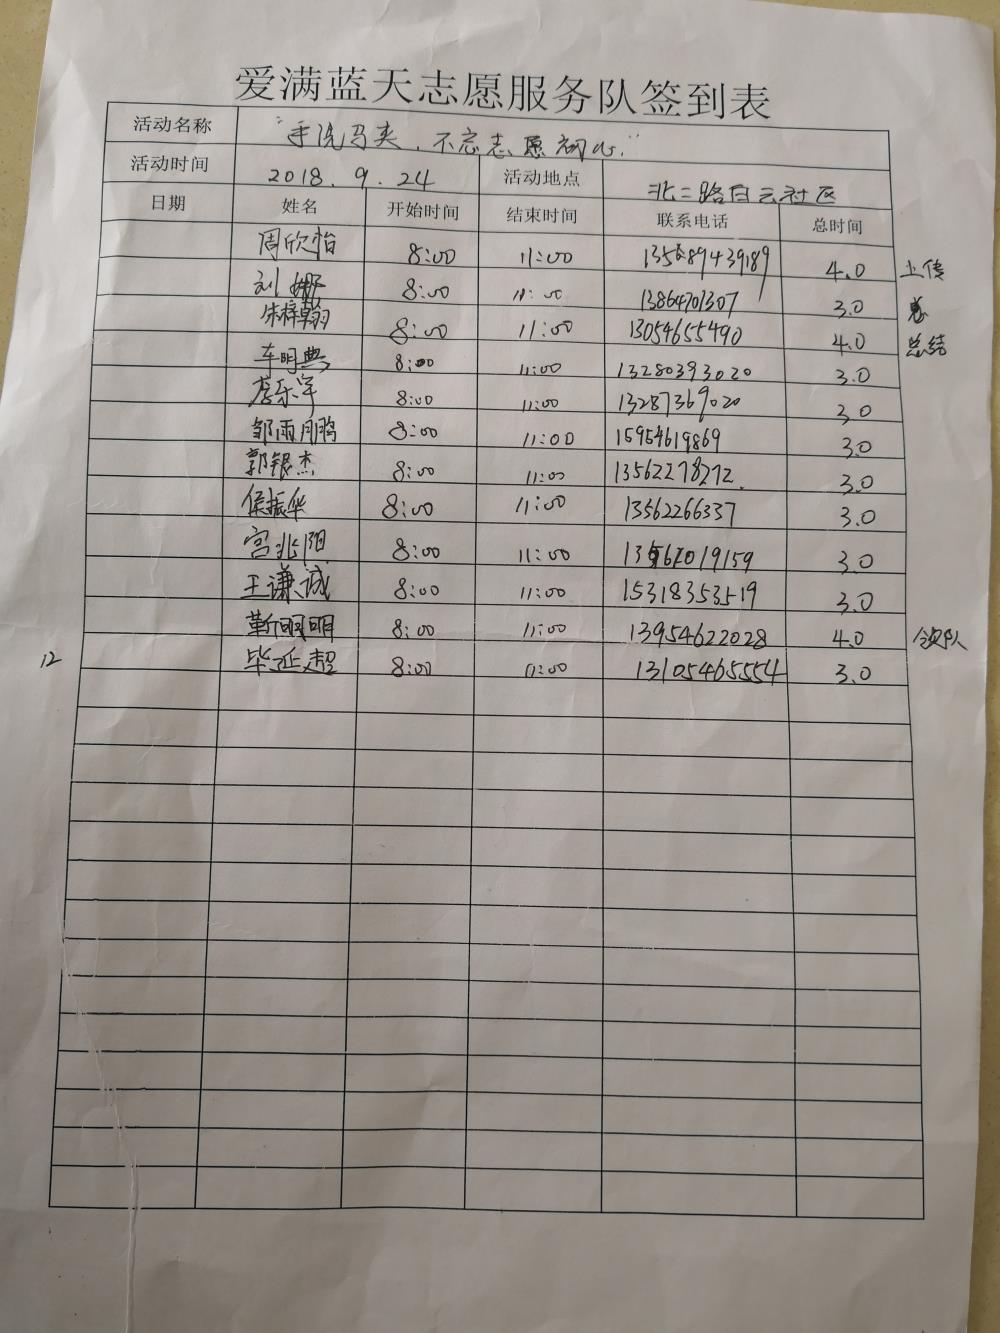 爱满蓝天志愿服务队签到表
活动名称 "手洗马夹，不忘志愿初心"
活动时间 2018.9.24 活动地点 北二路白云社区
日期 姓名 开始时间 结束时间 联系电话 总时间
周欣怡 8:00 11:00 4.0 上传
刘娜 8:00 11:00 13864701307 3.0 总
朱梓翰 8:00 11:00 13054655490 4.0 总结
车明典 8:00 11:00 13280393020 3.0
8:00 11:00 13287369020 3.0
邹雨朋 8:00 11:00 15954619869 3.0
郭银杰 8:00 11:00 13562278272. 3.0
侯振华 8:00 11:00 13562266337 3.0
宫兆阳 8:00 11:00 3.0
王谦诚 8:00 11:00 15318353519 3.0
靳明明 8:00 11:00 13954622028 4.0 领队
12 毕延超 8:00 11:00 13105465554 3.0